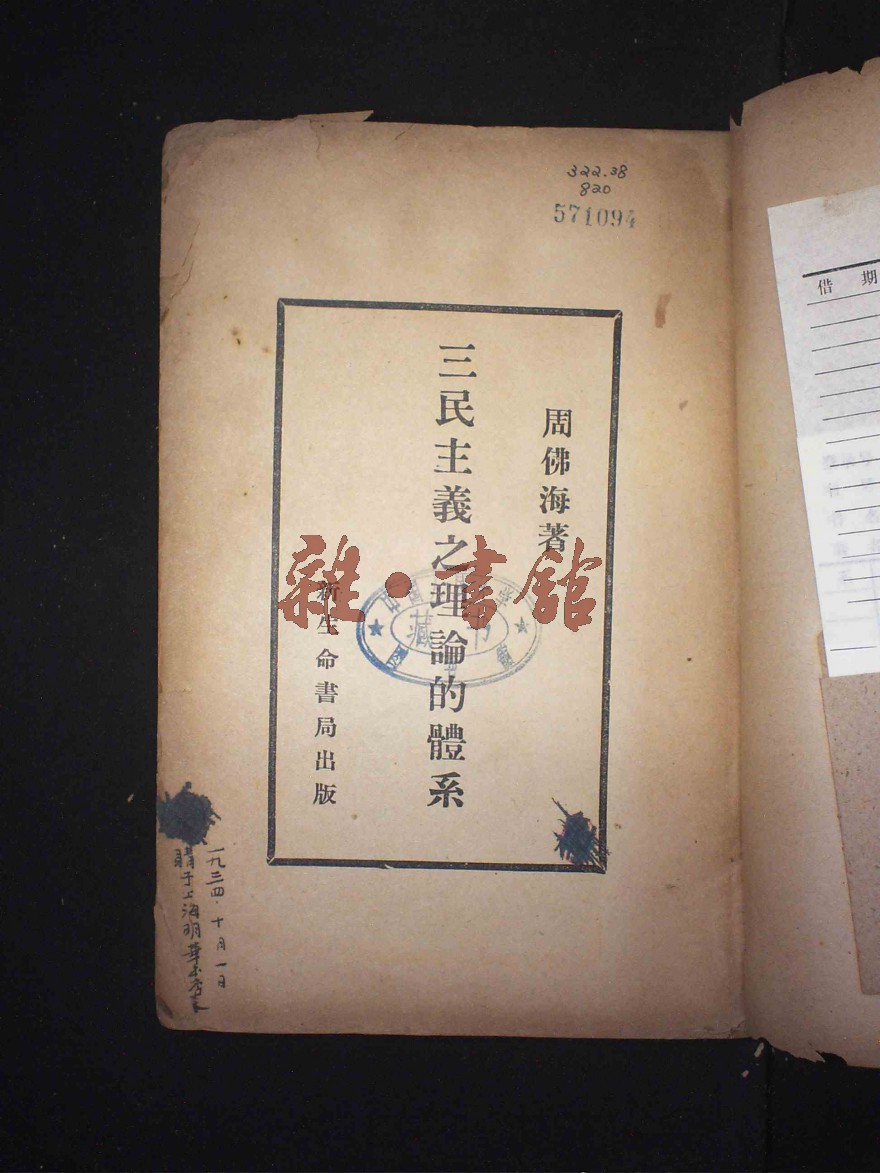 322.38
820
571094
周佛海著
三民主義之理論的體系
新生命書局出版
雜·書館
藏书
一九三四·十月一日
購于上海明華
借 期